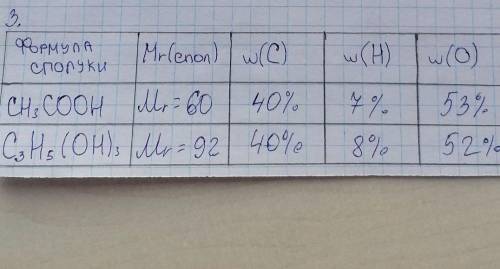 3.
Формула сполуки Mr(спол) w(C) w(H) w(O)
CH₃COOH Mr=60 40% 7% 53%
C₃H₅(OH)₃ Mr=92 40% 8% 52%